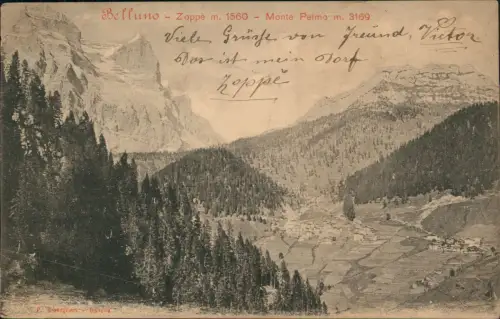 Belluno - Zoppè m. 1560 - Monte Pelmo m. 3169
Viele Grüße von Freund, Victor
Das ist mein Dorf
Zoppè